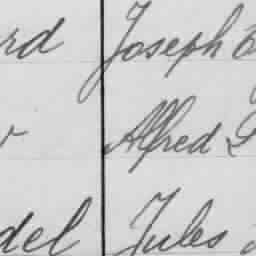 rd Joseph
Alfred
del Jules